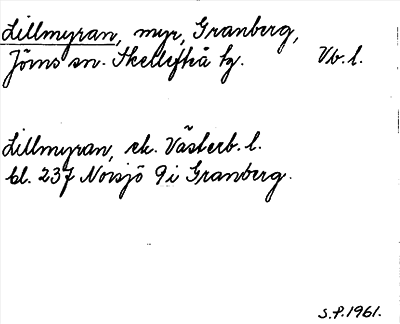 Lillmyran, myr, Granberg,
Jörns sn. Skellefteå tg. Vb. l.
Lillmyran, ek. Västerb. l.
bl. 237 Norsjö 9i Granberg.
S.P. 1961.